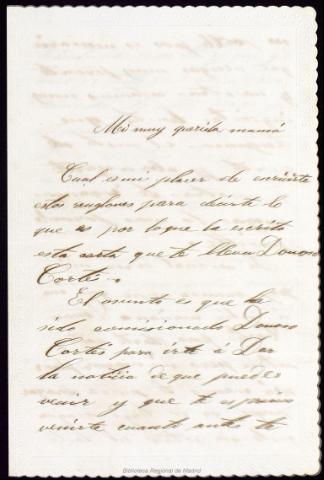 Mi muy querida mamá
Cual es mi placer de escribirte
estos renglones para decirte lo
que es por lo que la escrito
esta carta que te lleva Donoso
Cortés.
El asunto es que ha
sido comisionado Donoso
Cortés para irte á Dar
la noticia de que puedes
venir y que te
venirte cuanto ante te
Biblioteca Regional de Madrid